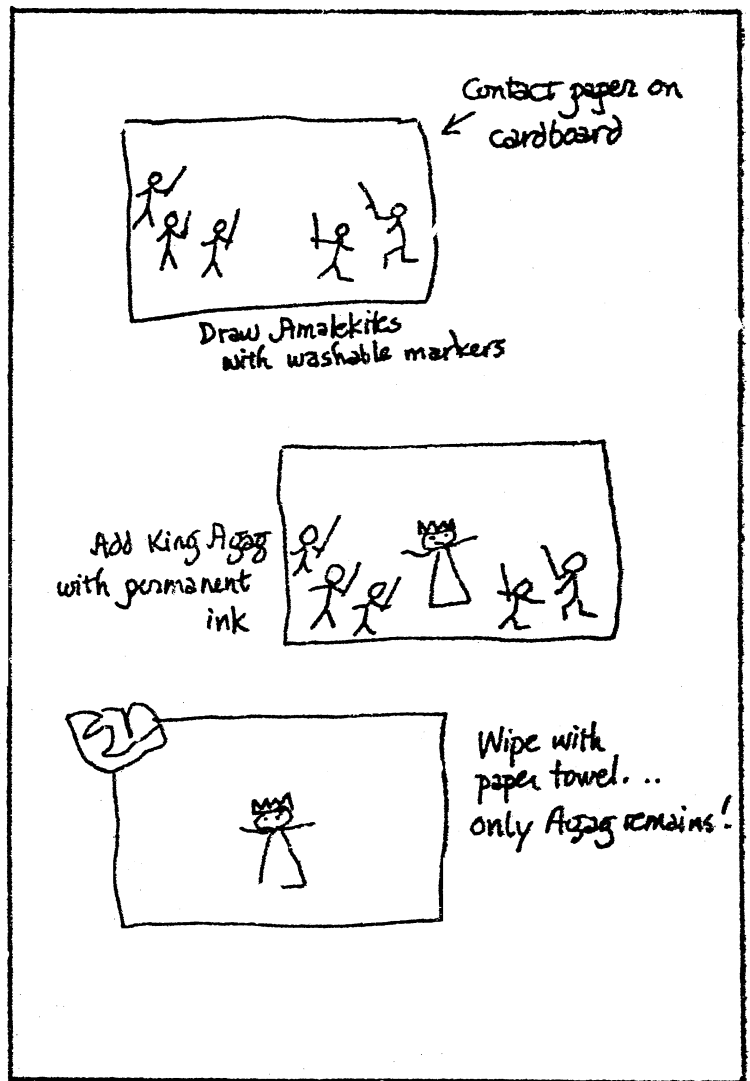 Contact paper on
cardboard
Draw Amalekites
with washable markers
Add King Agag
with permanent
ink
Wipe with
paper towel...
only Agag remains!